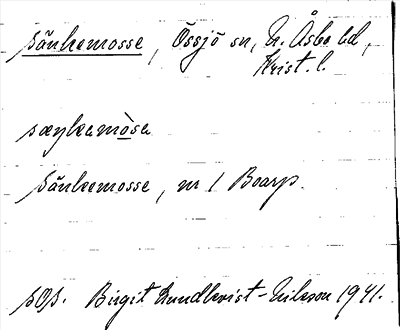 Sänkemosse, Össjö sn, N. Åsbo hd,
Krist. l.
sæŋkamòsa
Sänkemosse, nr 1 Boarp.
sOp. Birgit Lundkvist-Nilsson 1941.